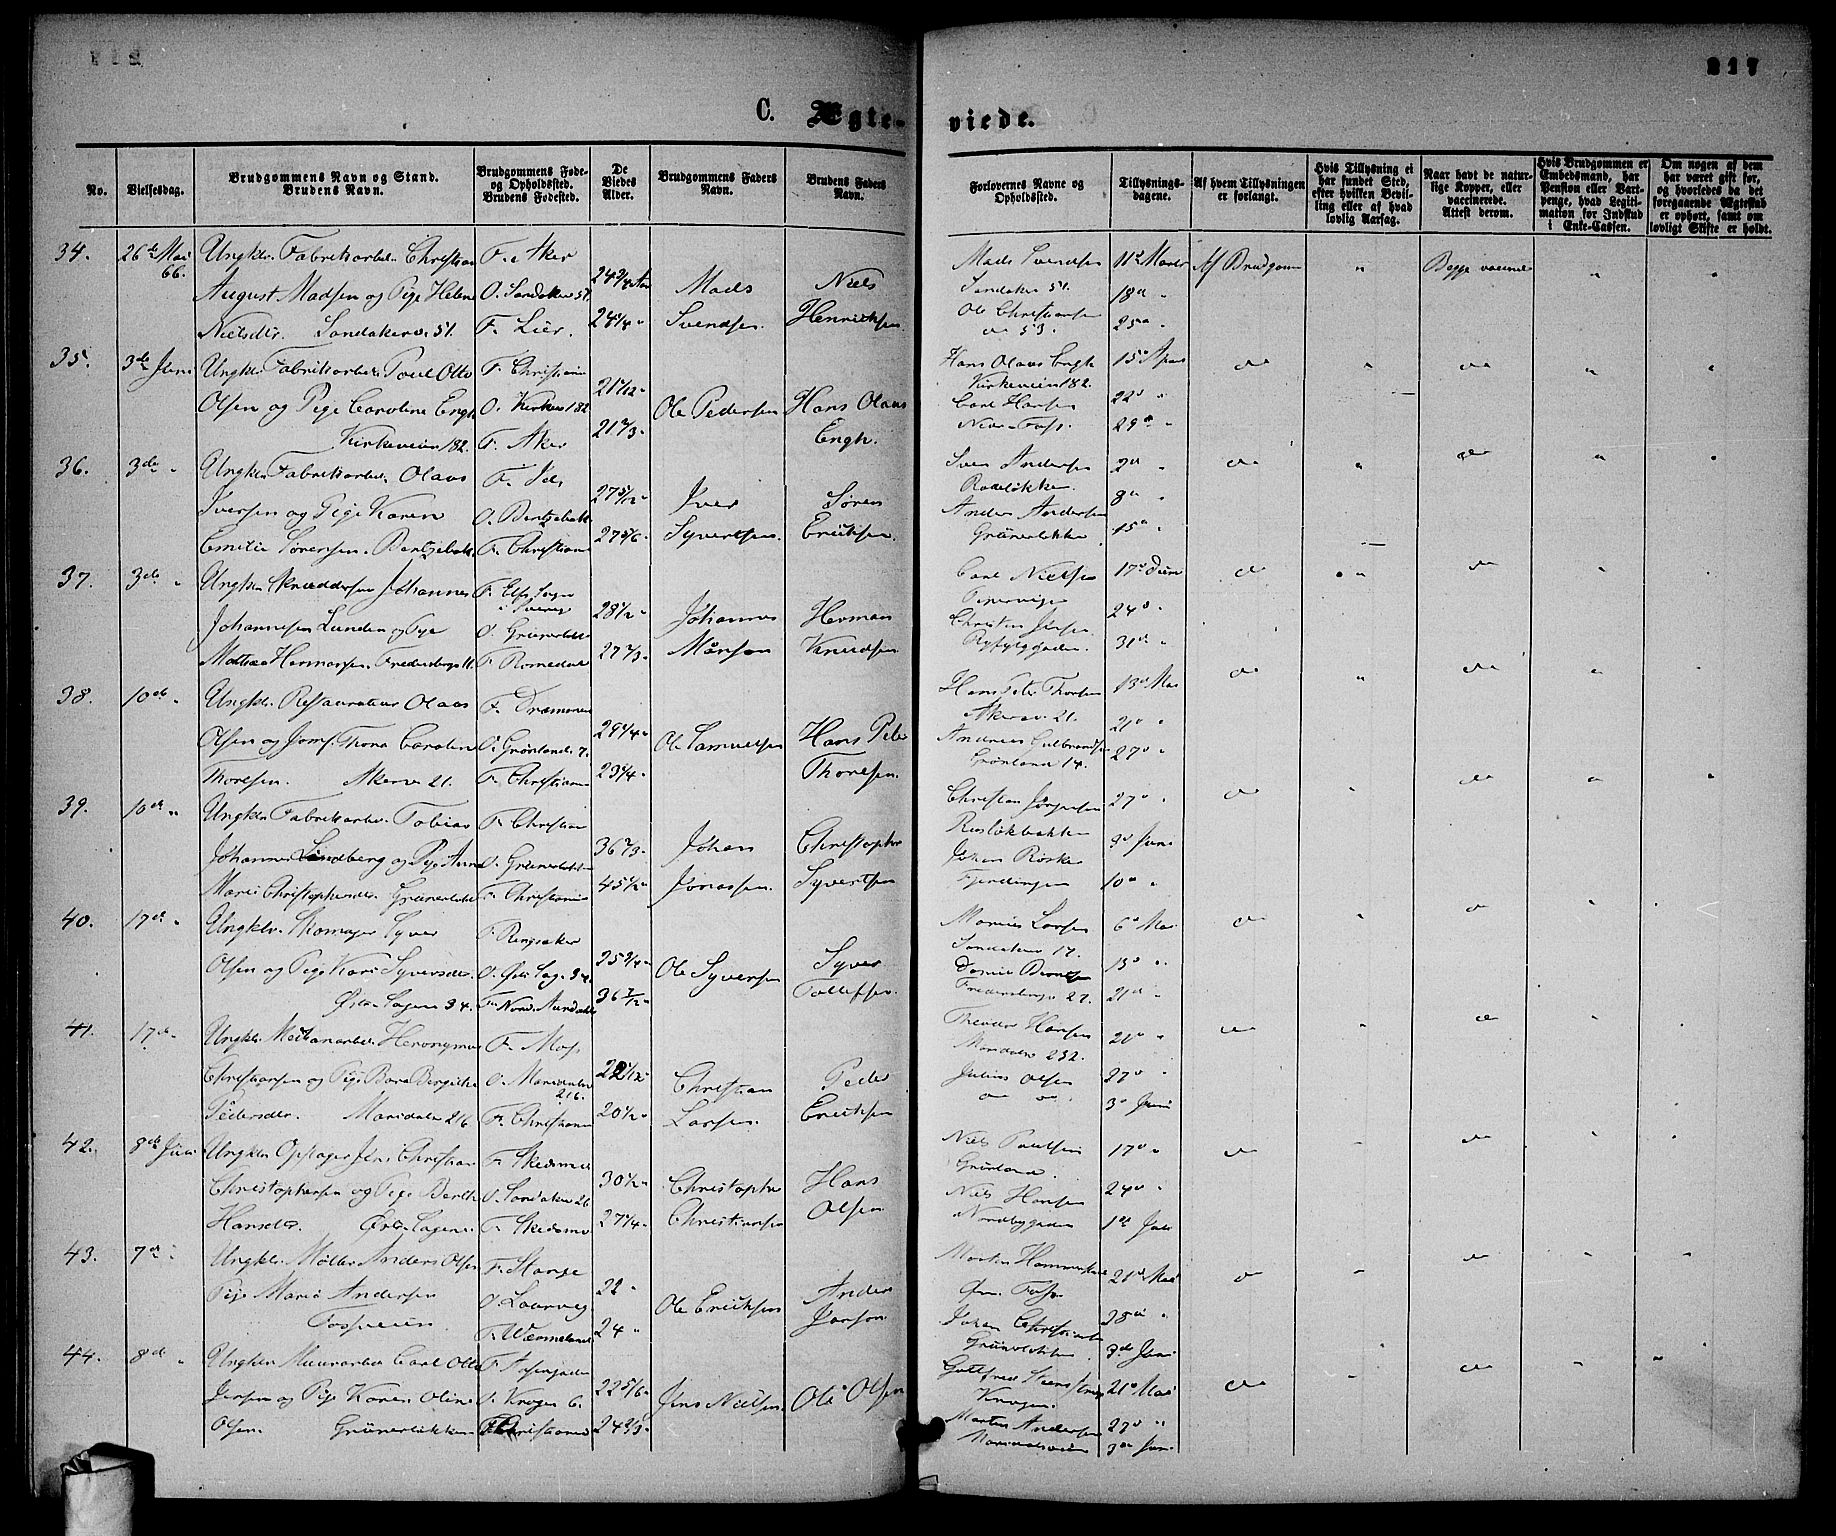 217
C. Ægte-
viede.
No.
Vielsesdag.
Brudgommens Navn og Stand.
Brudens Navn.
Brudgommens Føde-
og Opholdssted.
Brudens Fødested.
De
Viedes
Alder.
Brudgommens Faders
Navn.
Brudens Faders
Navn.
Forlovernes Navne og
Opholdssted.
Tillysnings-
dagene.
Af hvem Tillysningen
er forlangt.
Hvis Tillysning ei
har fundet Sted,
efter hvilken Bevil-
ling eller af hvad
lovlig Aarsag.
Naar havt de natur-
lige Kopper, eller
vaccinerede.
Attest derom.
Hvis Brudgommen er
Embedsmand, har
Pension eller Vart-
penge, hvad Legiti-
mation for Indskud
i Enke-Cassen.
Om nogen af dem
har været gift før,
og hvorledes da det
foregaaende Ægteskab
er ophørt, samt om
lovligt Skifte er holdt.
34. 26de Mai
66.
Ungkl. Fabrikarbei. Christian
August Madsen og Pige Helene
Nielsdtr. Sandakerv. 51.
F. Aker
O. Sandaker 51.
F. Lier.
24 3/4 Aar
24 1/4 "
Mads
Svendsen.
Niels
Henriksen.
Mads Svendsen
Sandaker 51.
Ole Christiansen
do 53.
11te Marts
18de "
25de "
Af Brudgom
Begge vaccinel
35. 3de Juni
Ungkl. Fabrikarbei. Poul Otto
Olsen og Pige Caroline Engh
Kirkeveien 182.
F. Christiania
O. Kirkev 182
F. Aker
21 2/3 "
Ole Pedersen
Hans Olaus
Engh.
Hans Olaus Engh
Kirkeveien 182.
Carl Hansen
15de April
22de "
29de "
36. 3de "
Ungkl. Fabrikarbei. Olaus
Iversen og Pige Karen
Emilie Sørensen. Bentsebak.
O. Bentsebak
F. Christiania
27 5/12 "
27 5/6 "
Iver
Syvertsen.
Søren
Eriksen.
Sven Andersen
Rodeløkken.
Anders Andersen
Grünerløkken
2den "
8de "
15de "
37. 3de "
Ungkl. Skrædder Johannes
Johannesen Lunden og Pige
Mathea Hermansen. Fredensborg 11.
i Sverig
O. Grünerløkk
F. Romedal
28 1/2 "
27 2/3 "
Johannes
Månson
Herman
Knudsen
Carl Nielsen
Pipervigen
Christen Jensen.
Ryfylgaden.
17de Dim
24de "
31te "
38. 10de "
Ungkl. Restauratør Olaus
Olsen og Jomf. Thora Caroline
Thorsen. Akersv 21.
F. Drammen
O. Grønlands 7.
F. Christiania
29 1/4 "
23 1/4 "
Ole Samuelsen
Hans Peter
Thorsen.
Hans Peter Thorsen
Akersv. 21.
Andreas Gulbrandsen
Grønland 14.
13de Mai
21de "
27de "
39. 10de "
Ungkl. Fabrikarbei. Tobias
Johannes Lindberg og Pige Anne
Marie Christophersdtr. Grünerløkk
F. Christiania
O. Grünerløkk
F. Christiania
36 2/3 "
45 1/2 "
Johan
Jonassen.
Christopher
Syvertsen
Christian Jørgensen
Ruseløkbakken
Johan Røske
Fjerdingen
27de "
3de Juni
10de "
40. 17de "
Ungklr. Skomager Syver
Olsen og Pige Kari Syversdr.
Østre Sagene 34.
F. Ringsaker
O. Østre Sag. 34
F. Nord Aurdal
25 3/4 "
36 7/12 "
Ole Syversen
Syver
Tollefsen.
Marius Larsen
Sandaker 17.
Fredensborgv 27.
6te Mai
13de "
21de "
41. 17de "
Ungkl. Mekanarbei. Hieronymus
Christiansen og Pige Bara Bergithe
Pedersdtr. Maridalsv 216
F. Moss
O. Maridalsv
216.
F. Christiania
22 1/12 "
20 1/2 "
Christian
Larsen.
Peder
Eriksen
Theodor Hansen
Maridalsv 232.
Julius Olsen
do do.
21de "
27de "
3de Juni
42. 8de Juli
Ungkl. Opsager Jens Christian
Christophersen og Pige Berthe
Hansdtr. Østre Sagene.
F. Skedsmo
O. Sandaker 26
F. Skedsmo
30 1/2 "
27 1/4 "
Christopher
Christiansen
Hans
Olsen
Niels Paulsen
Grønland
Niels Hansen
Nordbygaden
17de "
24de "
1ste Juli
43. 7de "
Ungkl. Møller Anders Olsen
Pige Maria Andersen
Fossveien.
F. Stange
O. Laurvig
F. Wermeland
22 "
24 "
Ole Eriksen
Anders
Jonson
Morten Hammerstad
Øvre Fossen
Johan Christiansen
Grünerløkken
21de Mai
28de "
3de Juni
44. 8de "
Ungkl. Murarbei. Carl Otto
Jensen og Pige Karen Oline
Olsen. Grünerløkken
O. Krogen 6.
F. Christiania
22 5/6 "
24 2/3 "
Jens Nielsen.
Ole Olsen
Krogen.
Martin Andersen
Maridalsveien
21de Mai
27de "
3de Juni